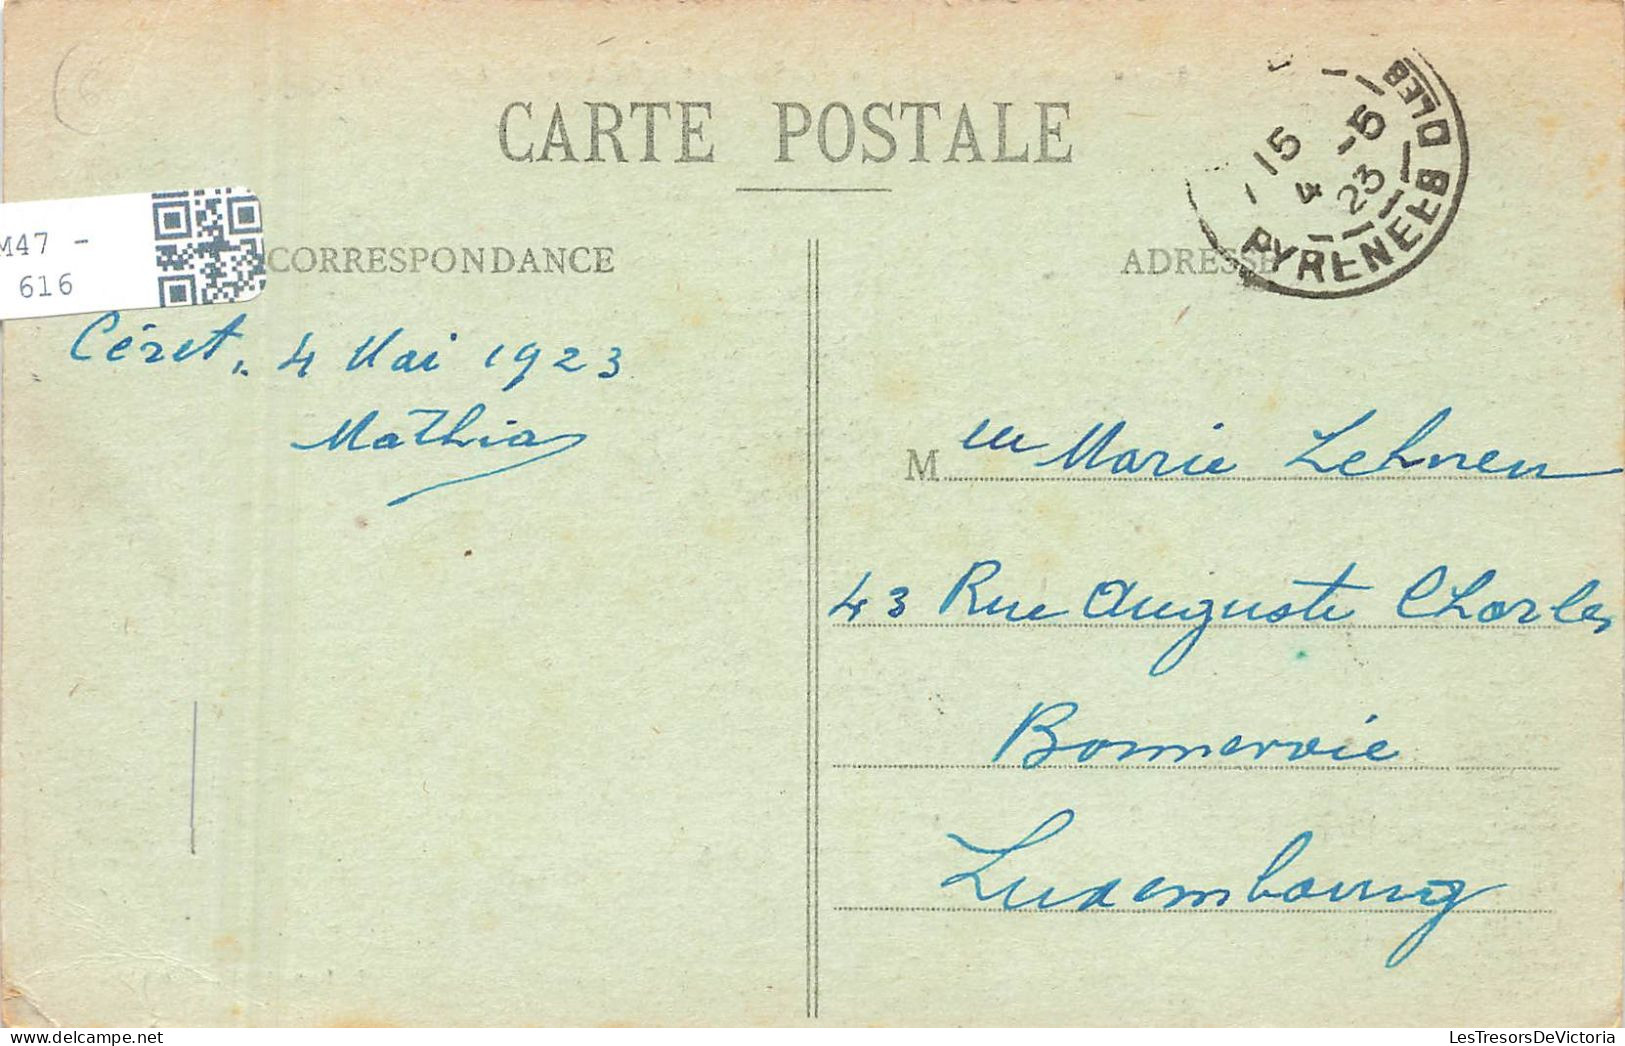 CARTE POSTALE
M47 -
616
CORRESPONDANCE
ADRESSE
15
4 -5
23
PYRENEES
Céret, 4 Mai 1923
Mathias
Mlle Marie Lehnen
43 Rue Auguste Charles
Bonnevoie
Luxembourg
LesTresorsDeVictoria.com